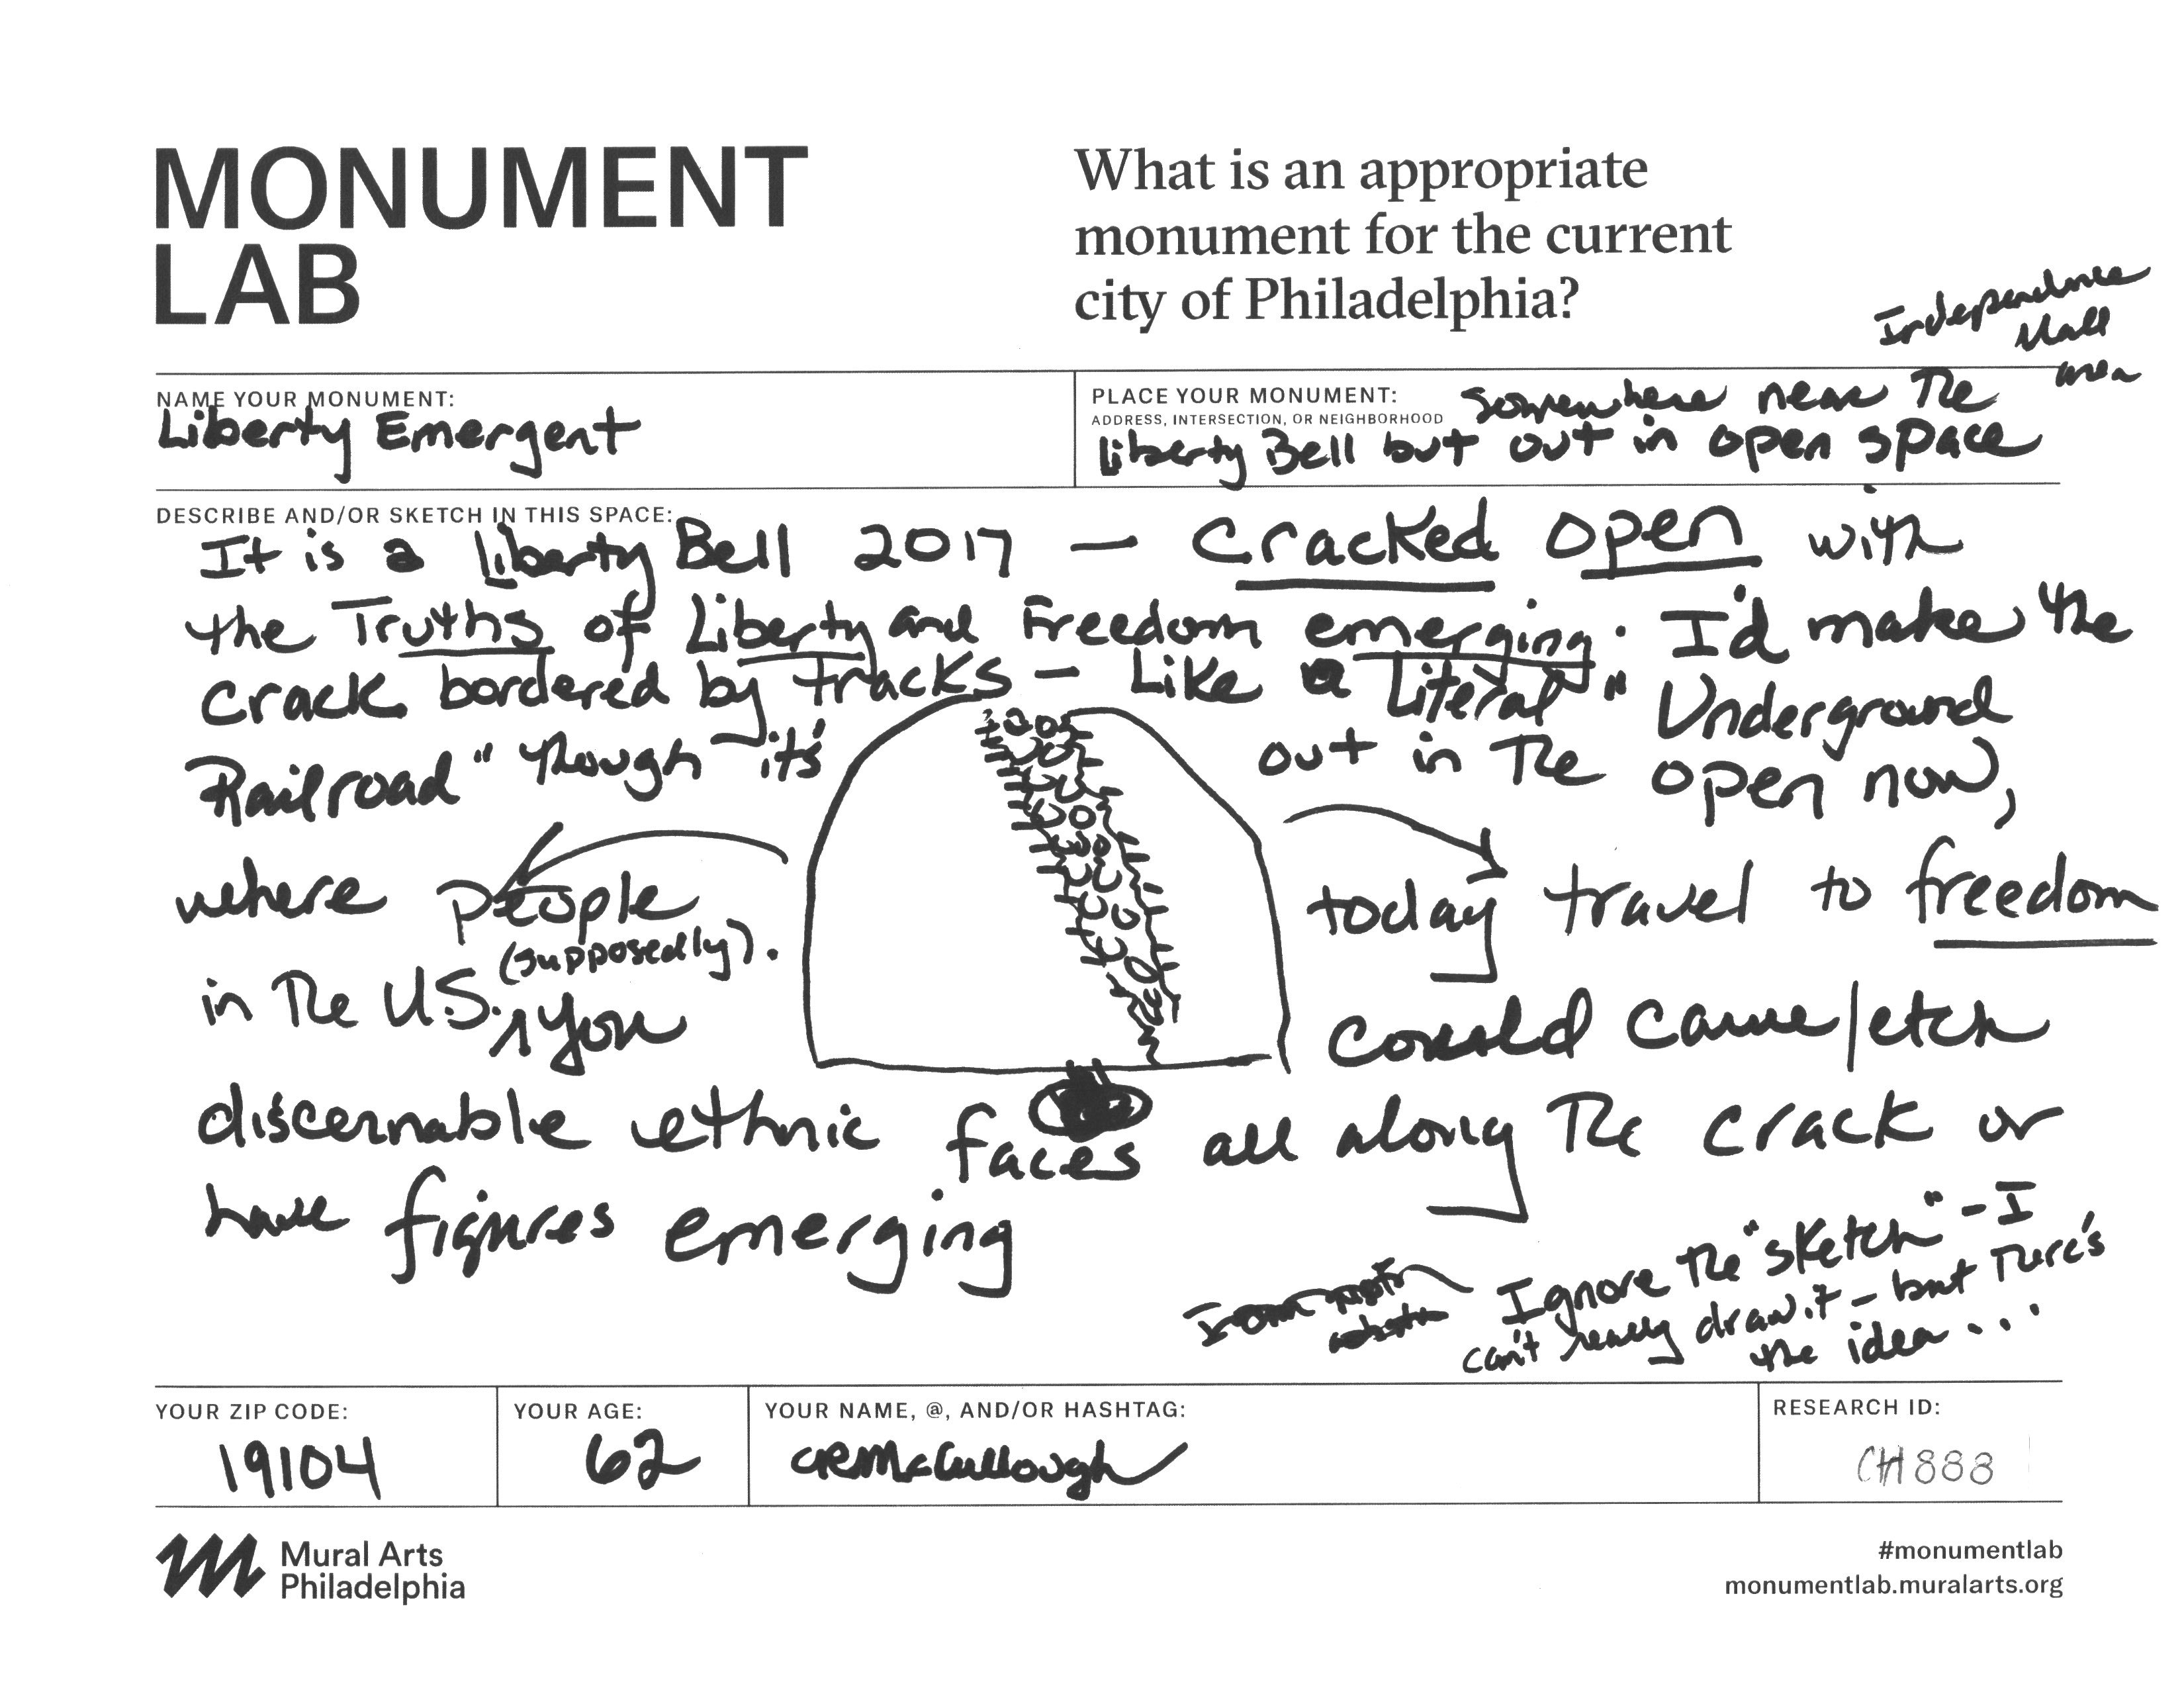 MONUMENT
LAB
What is an appropriate
monument for the current
city of Philadelphia?
Independence
Mall
area
NAME YOUR MONUMENT:
Liberty Emergent
PLACE YOUR MONUMENT:
ADDRESS, INTERSECTION, OR NEIGHBORHOOD
somewhere near The
liberty Bell but out in open space
DESCRIBE AND/OR SKETCH IN THIS SPACE:
It is a Liberty Bell 2017 — Cracked open with
the Truths of Liberty and Freedom emerging. I'd make the
crack bordered by tracks - Like a Literal "Underground
Railroad" though it's out in The open now,
where people today travel to freedom
(supposedly).
in The U.S. You could carve/etch
discernable ethnic faces all along The crack or
have figures emerging
Ignore The "sketch" - I
can't really draw it - but There's
the idea...
YOUR ZIP CODE:
19104
YOUR AGE:
62
YOUR NAME, @, AND/OR HASHTAG:
CRMcCullough
RESEARCH ID:
CH888
Mural Arts
Philadelphia
#monumentlab
monumentlab.muralarts.org